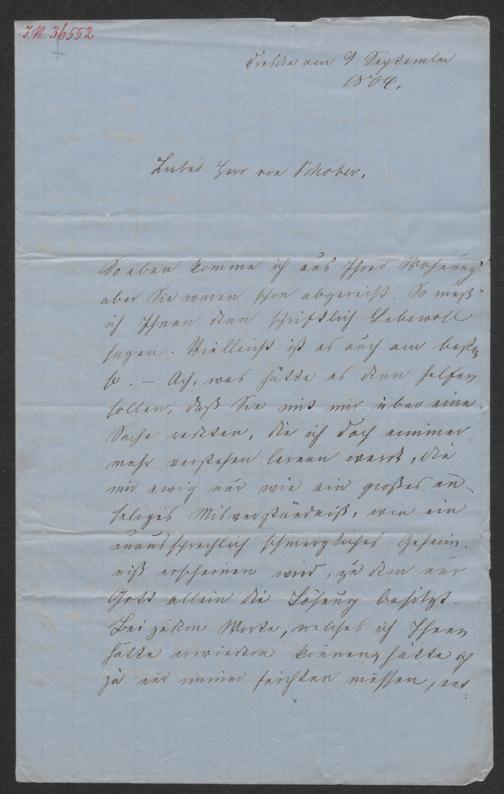 I.N. 36552
am 9 September
18
Liebes Herr von Schober,
So eben komme ich aus Ihrer Wohnung
aber Sie waren schon abgereist. So muß
ich Ihnen denn schriftlich Lebewohl
sagen. Vielleicht ist es auch am besten
so. – Ach, was hätte es denn helfen
sollen, daß Sie mit mir über eine
Sache redeten, die ich doch nimmer
mehr verstehen lernen werde, die
mir ewig nur wie ein großes un-
seliges Misverständniß, wie ein
unaussprechlich schmerzliches Geheim-
niß erscheinen wird, zu dem nur
Gott allein die Lösung besitzt.
Bei jedem Worte, welches ich Ihnen
hätte erwiedern können, hätte ich
ja nur immer fürchten müssen,